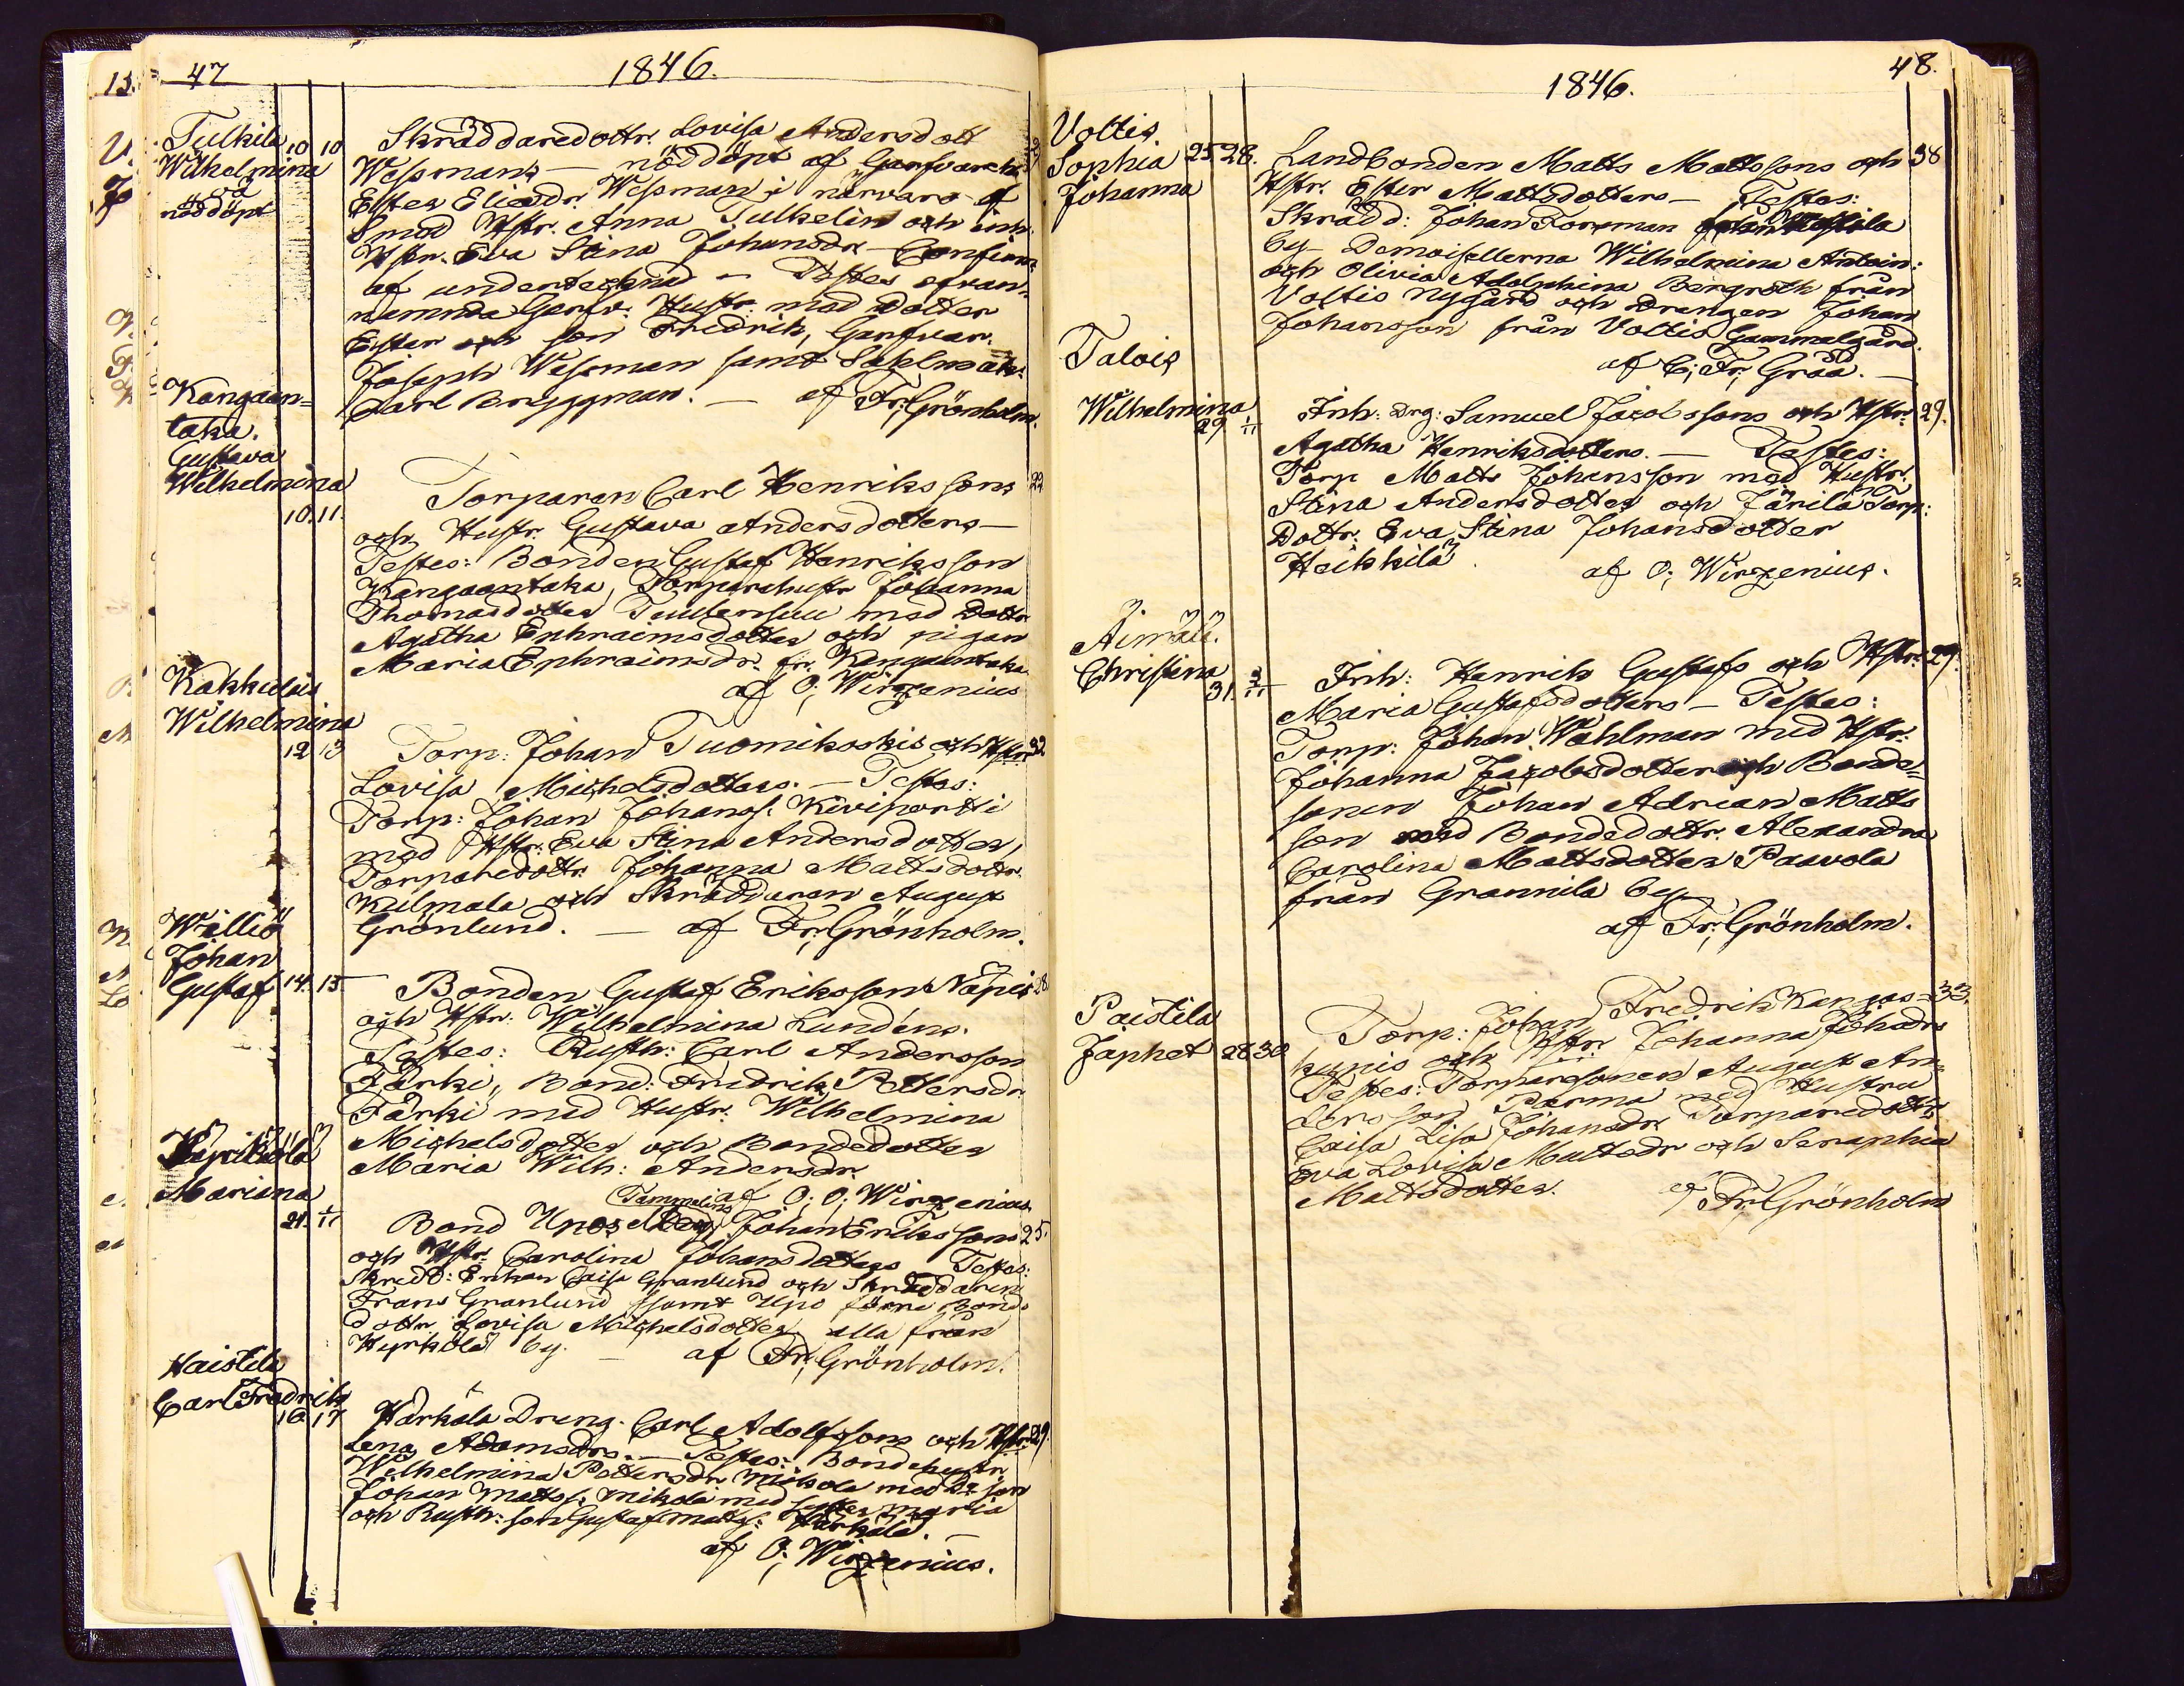 47
1846.
Tulkila 10 10
Wilhelmina
nöddöpt
Skräddaredottr. Lovisa Andersdott
Wessmans — nöddöpt af Garfvareh:
Ester Eliedr. Wessman i närvaro af
Smed Hstr. Anna Tulkelin och inh.
Hstr. Eva Stina Johansdr. — Confirm:
af undertecknad — Testes ofvan-
nämnda Garfv. Hustr. med dotter
Ester och son Fredrik, Garfvar.
Joseph Wessman samt Sadelmak:
Carl Bryggman. — af Fr. Grönholm.
Kangaan=
taka.
Gustava
Wilhelmina
10. 11.
Torparen Carl Henrikssons 22
och Hustr. Gustava Andersdotters —
Testes: Bonden Gustaf Henriksson
Kangaantaka, Torparehustr Johanna
Thomasdotter med Dottr
Agatha Ephraimsdotter och pigan
Maria Ephraimsdr. fr. Kangaantaka
af O; Wirzenius
Kakkulais
Wilhelmina
12 13
Torp: Johan Tuomikoskis och Hstr 32
Lovisa Michelsdotters. — Testes:
Torp: Johan Johanss. Kiviportti
med Hstr. Eva Stina Andersdotter,
Torparedottr. Johanna Mattsdottr.
Kulmala och Skräddaren August
Grönlund. — af Fr. Grönholm.
Williö
Johan
Gustaf 14. 15.
Bonden Gustaf Eriksson Näpis 28.
och Hstr. Wilhelmina Lundens.
Testes: Rusth: Carl Andersson
Färki, Bond: Fredrik Pettersdr.
Färki med Hustr. Wilhelmina
Michelsdotter och Bondedotter
Maria Wilh: Andersdr.
af O; O; Wirzenius
Hyrköilä
Mariana
21. 1/11
Tammelins
Bond Upos Johan Erikssons 25.
och Hstr. Carolina Johansdotters Testes:
Skrädd: Enkan Caisa Granlund och Skräddaren
Frans Granlund samt Upo förre Bond
dottr Lovisa Michelsdotter alla från
Hyrköilä by. — af Fr. Grönholm.
Haistila
Carl Fredrik
16 17
Härkälä Dreng. Carl Adolfssons och Hstr. 29.
Lena Adamsdrs. — Testes: Bondehustr
Wilhelmina Pettersdr. Mikola med Dr son
Johan Mattss. Mikola med Syster Maria
och Rusth: son Gustaf Matts: Härkälä. —
af O; Wirzenius.
1846.
48.
Voltis
Sophia 25. 28.
Johanna
Landbonden Matts Mattssons och 38
Hstr. Ester Mattsdotters — Testes:
Skrädd: Johan Forsman
by — Demoisellerna Wilhelmina Antoin:
och Olivia Adolphina Bergroth från
Voltis Nygård och drengen Johan
Johansson från Voltis Gammelgård.
af C; Fr; Gråå. —
Talois
Wilhelmina
29 1/11
Inh: Drg: Samuel Jacobssons och Hstr. 29.
Agatha Henriksdotters. — Testes:
Torp Matts Johansson med Hustr.
Stina Andersdotter och Järilä Torp:
Dottr. Eva Stina Johansdotter
Heikkilä. af O; Wirzenius.
Aimälä.
Christina
31. 3/11
Inh: Henrik Gustafs och Hstr. 29.
Maria Gustafsdotters — Testes:
Torp: Johan Wahlman med Hstr.
Johanna Jacobsdotter och Bonde=
sonen Johan Adrian Matts
son med Bondedottr. Alexandra
Carolina Mattsdotter Paavola
från Grannila by
af Fr. Grönholm.
Paistila
Japhet 28 30
Torp: Johan Fredrik Kangas= 33.
kunnis och Hstr. Johanna Johadrs
Testes: Torparesonen August An=
dersson Parma med Hustru
Caisa Lisa Johansdr. Torparedottr
Eva Lovisa Mattsdr och Seraphia
Mattsdotter. af Fr. Grönholm